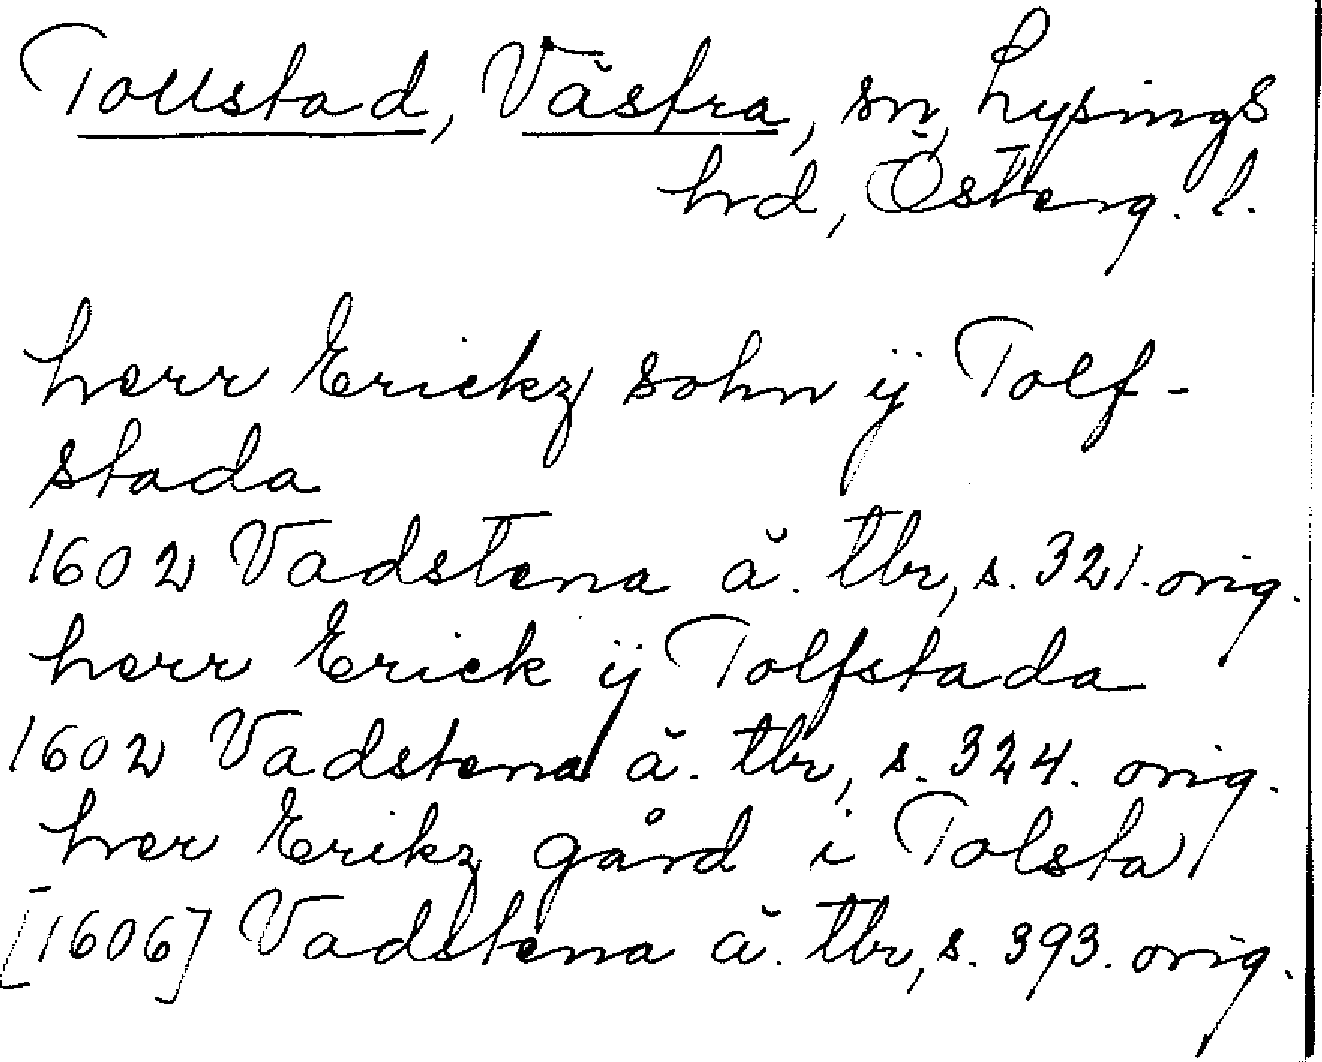 Tollstad, Västra, sn, Lysings
hrd, Österg. l.
herr Erickz sohn ÿ Tolf-
stada
1602 Vadstena ä. tbr, s. 321. orig.
herr Erick ÿ Tolfstada
1602 Vadstena ä. tbr, s. 324. orig.
her Erikz gård i Tolsta
[1606] Vadstena ä. tbr, s. 393. orig.